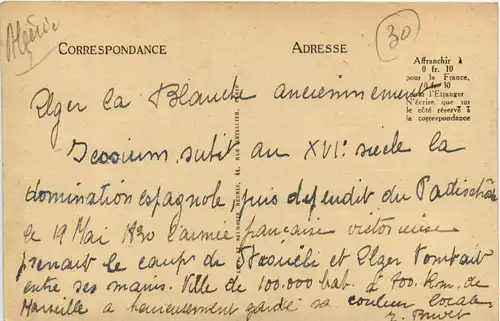 Algérie
30
CORRESPONDANCE
ADRESSE
Affranchir à
0 fr. 10
pour la France,
0 fr 30
pour l'Etranger
N'écrire que sur
le côté réservé à
la correspondance
Alger la Blanche anciennement
Icosium, subit au XVIe siècle la
domination espagnole puis défendit du Padischah
le 19 Mai 1830 l'armée française victorieuse
prenait le camp de Staouëli et Alger tombait
entre ses mains. Ville de 100.000 hab. à 700. Km. de
Marseille a heureusement gardé sa couleur locale